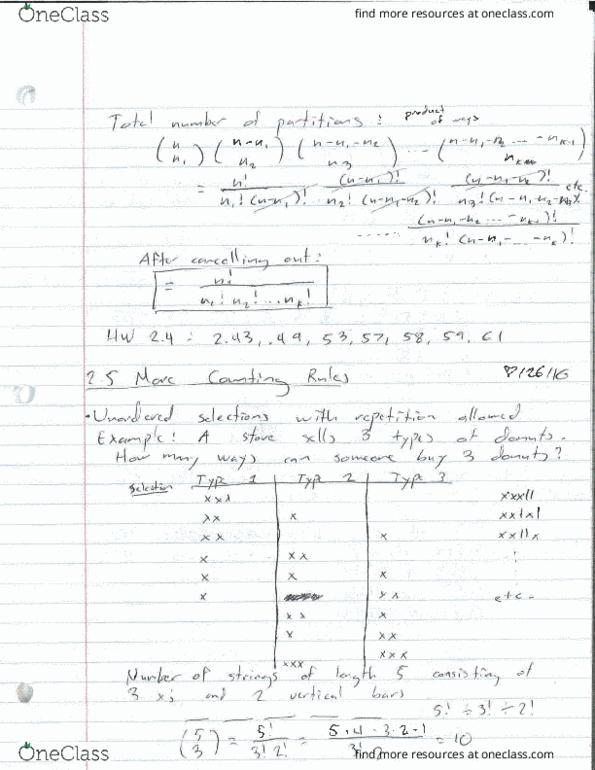 OneClass
find more resources at oneclass.com
Total number of partitions: product of ways
(n n₁) (n-n₁ n₂) (n-n₁-n₂ n₃) ... (n-n₁-n₂ ... -nₖ₋₁ nₖ)
= n! / n₁!(n-n₁)! (n-n₁)! / n₂!(n-n₁-n₂)! (n-n₁-n₂)! / n₃!(n-n₁-n₂-n₃)! etc.
..... (n-n₁-n₂ ... -nₖ₋₁)! / nₖ!(n-n₁- ... -nₖ)!
After cancelling out:
= n! / n₁! n₂! ... nₖ!
HW 2.4 : 2.43, .49, 53, 57, 58, 59, 61
2.5 More Counting Rules 8/26/16
• Unordered selections with repetition allowed
Example: A store sells 3 types of donuts.
How many ways can someone buy 3 donuts?
Selection Type 1 Type 2 Type 3
xxx xxx||
xx x xx|x|
xx x xx||x
x xx :
x x x
x xx etc.
xx x
x xx
xxx
xxx
Number of strings of length 5 consisting of
3 x's and 2 vertical bars
5! ÷ 3! ÷ 2!
(5 3) = 5! / 3! 2! = 5·4·3·2·1 / 3! = 10
OneClass
find more resources at oneclass.com